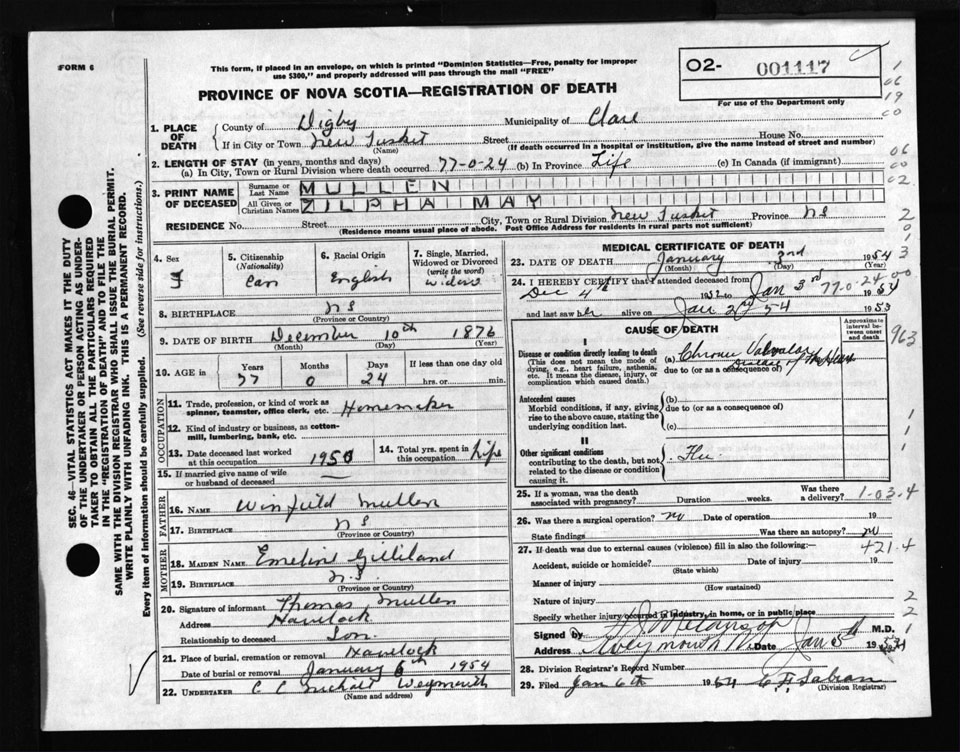 FORM 6
This form, if placed in an envelope, on which is printed "Dominion Statistics—Free, penalty for improper
use $300," and properly addressed will pass through the mail "FREE"
O2- 001117
For use of the Department only
PROVINCE OF NOVA SCOTIA—REGISTRATION OF DEATH
1. PLACE OF DEATH
County of Digby Municipality of Clare
If in City or Town New Tusket Street House No.
(Name) (If death occurred in a hospital or institution, give the name instead of street and number)
2. LENGTH OF STAY (in years, months and days)
(a) In City, Town or Rural Division where death occurred 77-0-24 (b) In Province Life (c) In Canada (if immigrant)
3. PRINT NAME OF DECEASED
Surname or Last Name MULLEN
All Given or Christian Names ZILPHA MAY
RESIDENCE No. Street City, Town or Rural Division New Tusket Province NS
(Residence means usual place of abode. Post Office Address for residents in rural parts not sufficient)
4. Sex F
5. Citizenship (Nationality) Can
6. Racial Origin English
7. Single, Married, Widowed or Divorced (write the word) Widow
8. BIRTHPLACE NS
(Province or Country)
9. DATE OF BIRTH December 10th 1876
(Month) (Day) (Year)
10. AGE in Years Months Days If less than one day
77 0 24 hrs. or min.
OCCUPATION
11. Trade, profession, or kind of work as
spinner, teamster, office clerk, etc. Homemaker
12. Kind of industry or business, as cotton-
mill, lumbering, bank, etc.
13. Date deceased last worked
at this occupation 1950
14. Total yrs. spent in
this occupation Life
15. If married give name of wife
or husband of deceased
FATHER
16. NAME Winfield Mullen
17. BIRTHPLACE NS
(Province or Country)
MOTHER
18. MAIDEN NAME Emeline Gilliland
19. BIRTHPLACE N.S.
(Province or Country)
20. Signature of informant Thomas Mullen
Address Havelock
Relationship to deceased Son
21. Place of burial, cremation or removal Havelock
Date of burial or removal January 6th 1954
22. UNDERTAKER C C Weymouth
(Name and address)
MEDICAL CERTIFICATE OF DEATH
23. DATE OF DEATH January 3rd 1954
(Month) (Day) (Year)
24. I HEREBY CERTIFY that I attended deceased from
Dec 4th to Jan 3rd 1954
77-0-24
and last saw her alive on Jan 2nd 54 1953
CAUSE OF DEATH
Approximate interval between onset and death
I
Disease or condition directly leading to death
(This does not mean the mode of
dying, e.g., heart failure, asthenia,
etc. It means the disease, injury, or
complication which caused death.)
(a) Chronic Valvular Disease of the Heart
due to (or as a consequence of)
Antecedent causes
Morbid conditions, if any, giving
rise to the above cause, stating the
underlying condition last.
(b)
due to (or as a consequence of)
(c)
II
Other significant conditions
contributing to the death, but not
related to the disease or condition
causing it.
Flu
25. If a woman, was the death
associated with pregnancy? Duration weeks. Was there a delivery?
1-03-4
26. Was there a surgical operation? no Date of operation 19
State findings Was there an autopsy? no
27. If death was due to external causes (violence) fill in also the following:-
421.4
Accident, suicide or homicide? Date of injury 19
(State which)
Manner of injury
(How sustained)
Nature of injury
Specify whether injury occurred in industry, in home, or in public place
Signed By M.D.
Address Weymouth Date Jan 5th 19
28. Division Registrar's Record Number
29. Filed Jan 6th 1954
(Division Registrar)
963
SEC. 46—VITAL STATISTICS ACT MAKES IT THE DUTY
OF THE UNDERTAKER OR PERSON ACTING AS UNDER-
TAKER TO OBTAIN ALL THE PARTICULARS REQUIRED
IN THE "REGISTRATION OF DEATH" AND TO FILE THE
SAME WITH THE DIVISION REGISTRAR WHO SHALL ISSUE THE BURIAL PERMIT.
WRITE PLAINLY WITH UNFADING INK. THIS IS A PERMANENT RECORD.
Every item of information should be carefully supplied. (See reverse side for instructions.)